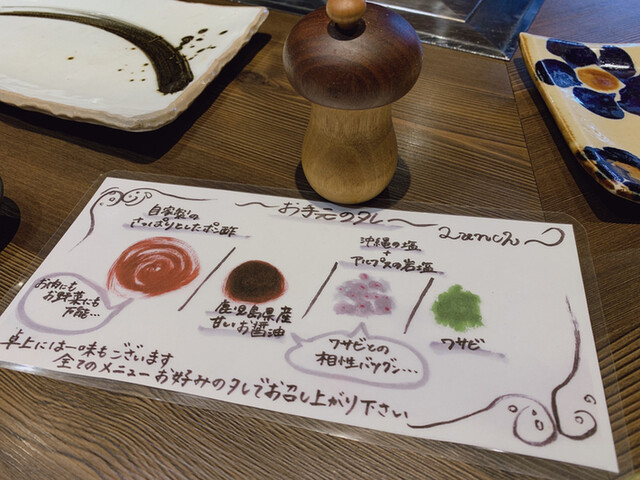 〜お手元のタレ〜 Lunch〜
自家製の
さっぱりとしたポン酢
お肉にも
お野菜にも
万能…
鹿児島県産
甘いお醤油
沖縄の塩
+
アルプスの岩塩
ワサビとの
相性バツグン…
ワサビ
卓上には一味もございます
全てのメニューお好みのタレでお召し上がり下さい